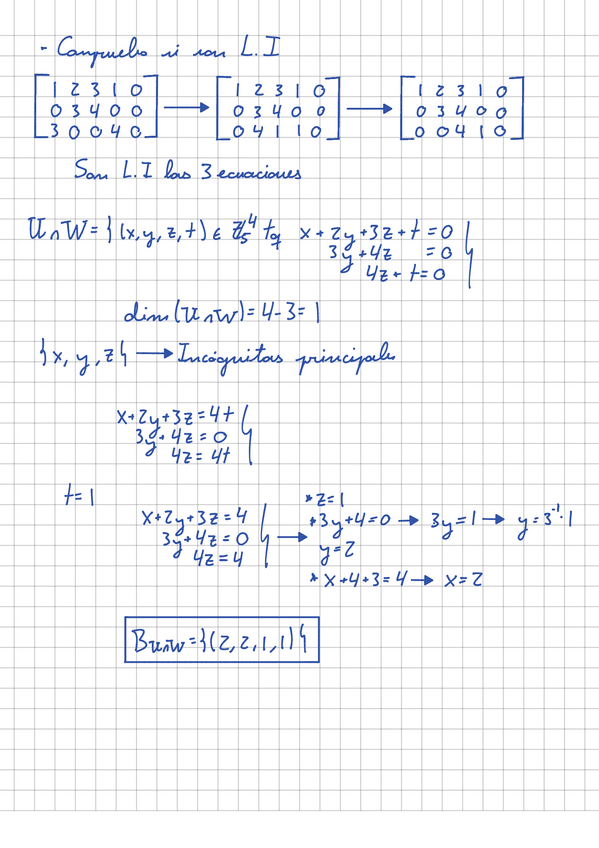 - Compruebo si son L.I
[1 2 3 1 0] [1 2 3 1 0] [1 2 3 1 0]
[0 3 4 0 0] → [0 3 4 0 0] → [0 3 4 0 0]
[3 0 0 4 0] [0 4 1 1 0] [0 0 4 1 0]
Son L.I las 3 ecuaciones
U∩W={(x,y,z,t) ∈ ℤ₅⁴ tq x+2y+3z+t=0
3y+4z =0
4z+t=0}
dim(U∩W)=4-3=1
{x,y,z} → Incógnitas principales
x+2y+3z=4t
3y+4z=0
4z=4t}
t=1
*z=1
x+2y+3z=4 *3y+4=0 → 3y=1 → y=3⁻¹·1
3y+4z=0 } → y=2
4z=4
*x+4+3=4 → x=2
B_{U∩W}={(2,2,1,1)}